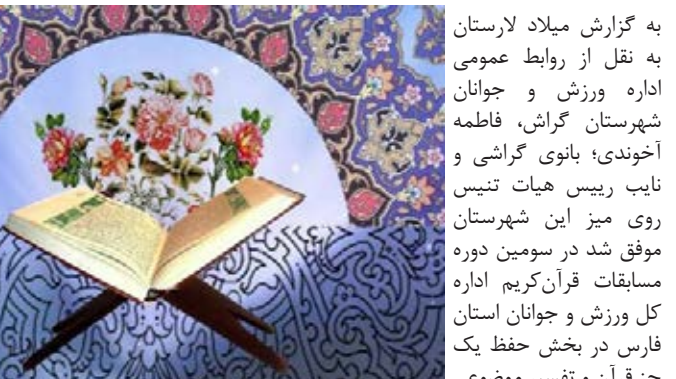 به گزارش میلاد لارستان
به نقل از روابط عمومی
اداره ورزش و جوانان
شهرستان گراش، فاطمه
آخوندی؛ بانوی گراشی و
نایب رییس هیات تنیس
روی میز این شهرستان
موفق شد در سومین دوره
مسابقات قرآن‌کریم اداره
کل ورزش و جوانان استان
فارس در بخش حفظ یک
جز قرآن و تفسیر موضوعی